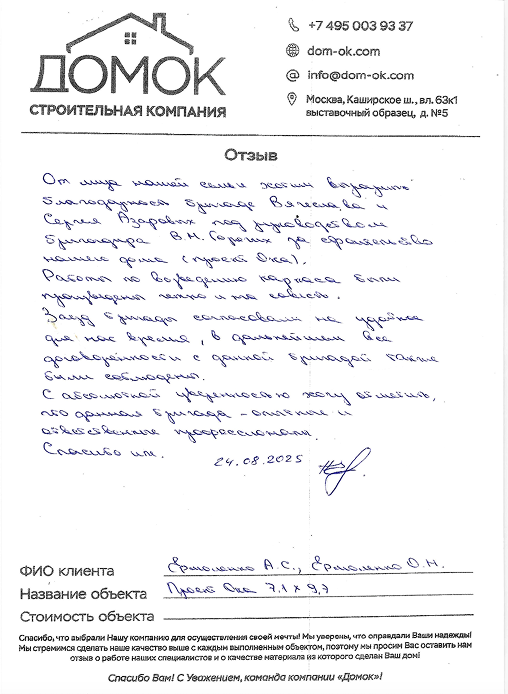 ДОМОК
СТРОИТЕЛЬНАЯ КОМПАНИЯ
+7 495 003 93 37
dom-ok.com
info@dom-ok.com
Москва, Каширское ш., вл. 63к1
выставочный образец, д. №5
Отзыв
От лица нашей семьи хотим выразить
благодарность бригаде Вячеслава и
Сергея Азаровых под руководством
бригадира В.Н. за строительство
нашего дома (проект Ока).
Работы по возведению каркаса были
произведены четко и на совесть.
Заезд бригады согласовали на удобное
для нас время, в дальнейшем все
договорённости с данной бригадой также
были соблюдены.
С абсолютной уверенностью хочу отметить,
что данная бригада - опытные и
ответственные профессионалы.
Спасибо им.
24.08.2025
ФИО клиента Ермоленко А.С., Ермоленко О.Н.
Название объекта Проект Ока 7,1 х 9,7
Стоимость объекта
Спасибо, что выбрали Нашу компанию для осуществления своей мечты! Мы уверены, что оправдали Ваши надежды!
Мы стремимся сделать наше качество выше с каждым выполненным объектом, поэтому мы просим Вас оставить нам
отзыв о работе наших специалистов и о качестве материала из которого сделан Ваш дом!
Спасибо Вам! С Уважением, команда компании «Домок»!